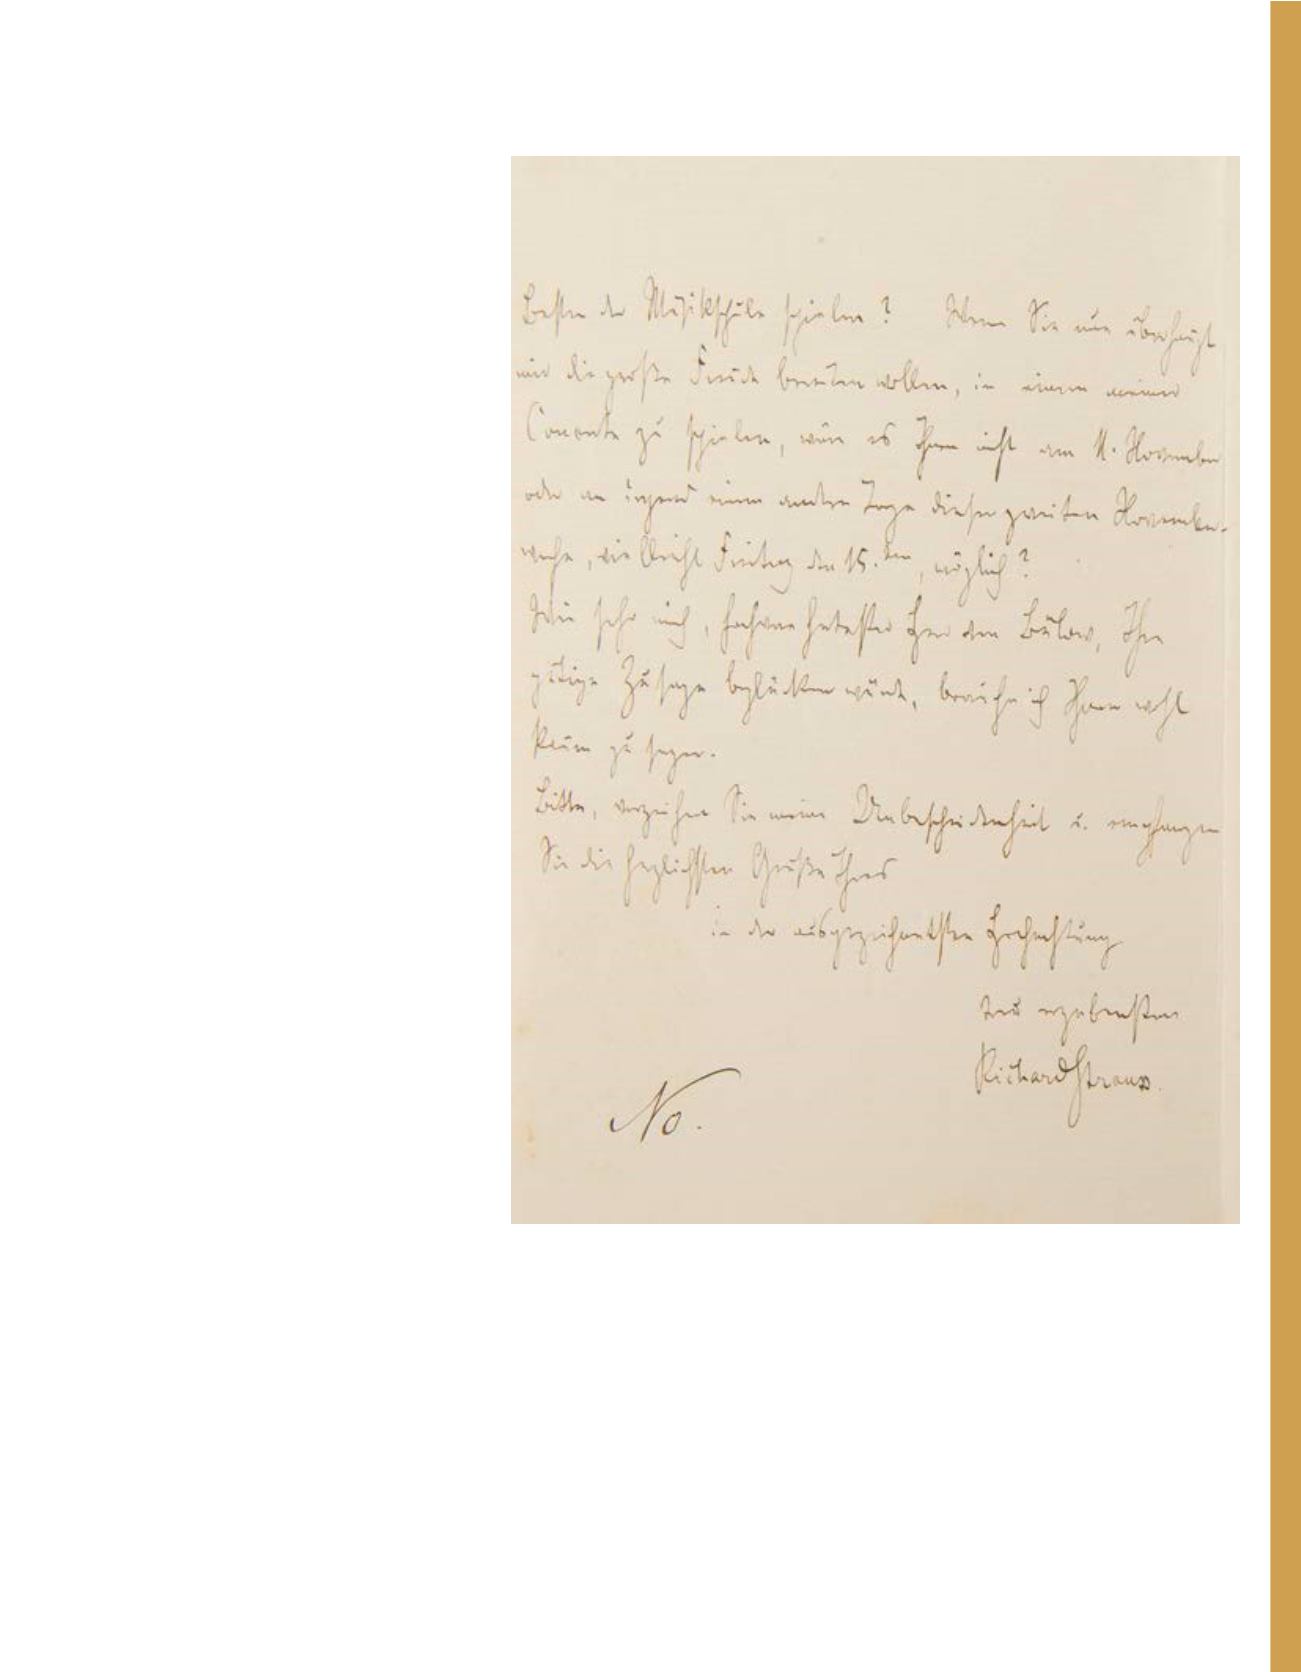 Besten der Musikschule spielen? Wenn Sie nur überhaupt
mir die große Freude bereiten wollen, in einem meiner
Concerte zu spielen, wäre es Ihnen nicht am 11. November
oder an irgend einem andern Tage dieser zweiten November-
woche, vielleicht Freitag den 15.ten, möglich?
Wie sehr mich, hochverehrtester Herr von Bülow, Ihre
gütige Zusage beglücken würde, brauche ich Ihnen wohl
kaum zu sagen.
Bitte, verzeihen Sie meine Unbescheidenheit u. empfangen
Sie die herzlichsten Grüße Ihres
in der ausgezeichnetsten Hochachtung
treu ergebensten
Richard Strauss.
No.